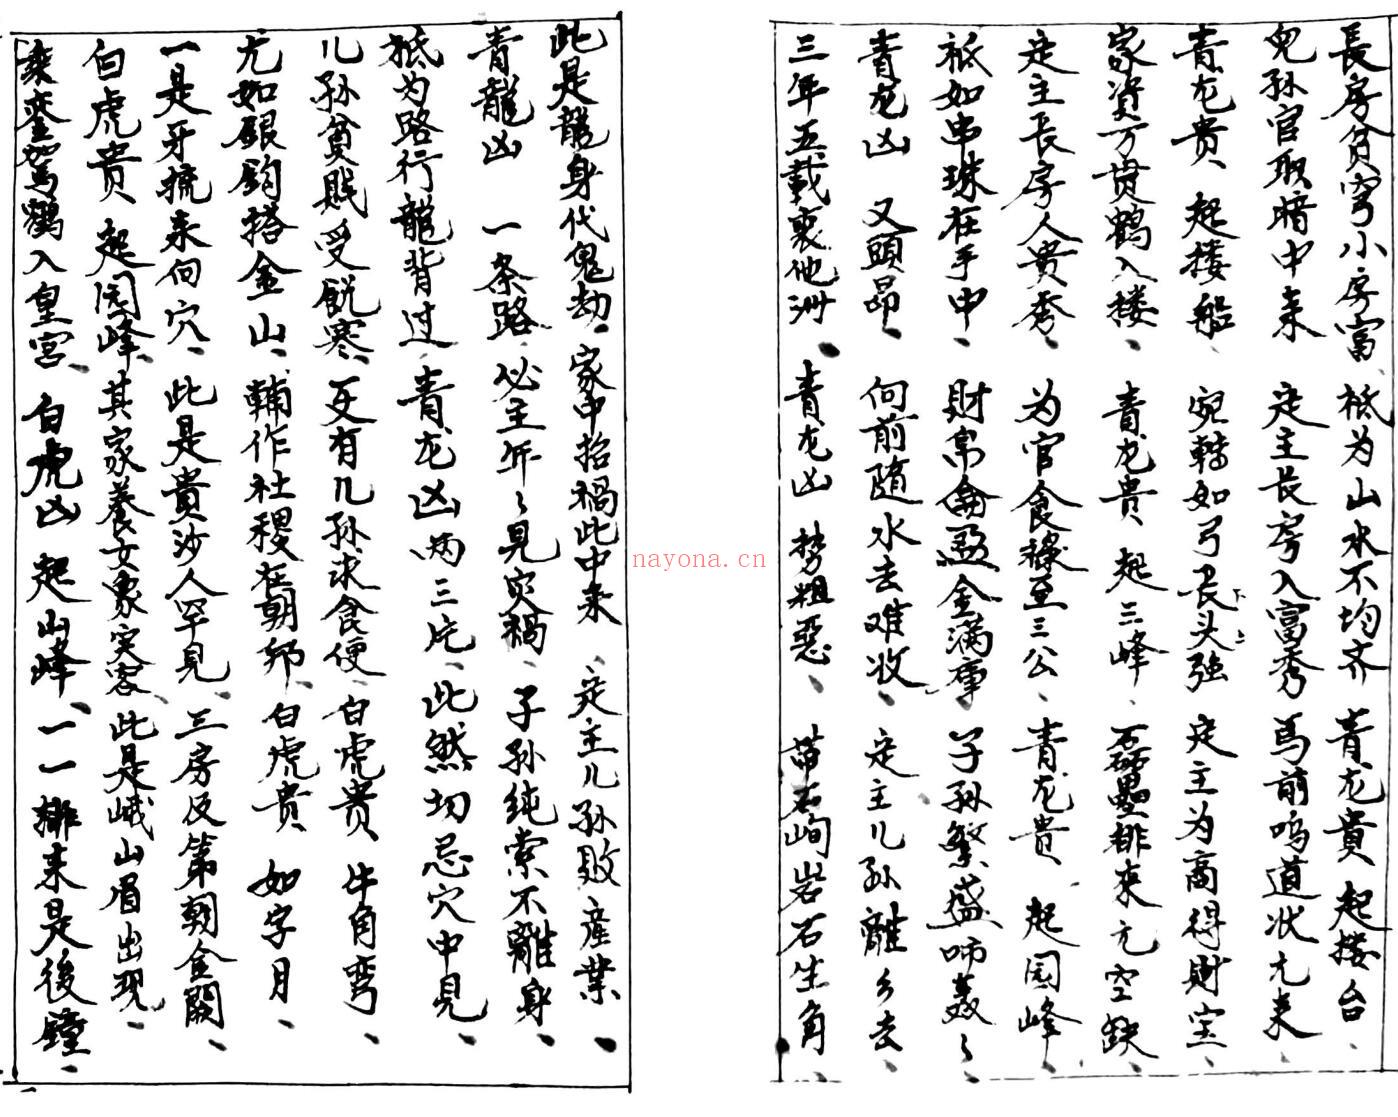 長房貧穷小房富、祗为山水不均齐、青龙貴起楼台、
兒孙官取暗中来、定主長房入富秀、馬前鸣道状元来、
青龙贵起楼船、宛轉如弓長头强、定主为商得財宝、
家資万貫鶴入楼、青龙貴起三峰、磊壘排来无空缺、
定主長房人贵秀、为官食禄至三公、青龙贵起园峰、
祗如串珠在手中、財帛盈金满庫、子孙繁盛姦〻、
青龙凶又頭昂、向前随水去难收、定主儿孙離乡去、
三年五載裹他洲、青龙凶势粗惡、带石峋岩石生角、
此是龍身代鬼劫、家中招禍此中来、定主儿孙败産業、
青龍凶一条路、必主年〻見灾禍、子孙纯索不離身、
祗为路行龍背过、青龙凶两三庀、此然切忌穴中見、
儿孙貧賎受飢寒、更有儿孙求食便、白虎贵牛角弯、
尤如銀鈎搭金山、輔作社稷在朝邦、白虎贵如字月、
一是牙梳来向穴、此是貴沙人罕見、三房及第朝金闕、
白虎贵起园峰、其家養女象実客、此是峨山眉出现、
乘鸾駕鶴入皇宫、白虎凶起山峰、一一排来是後鐘、
nayona.cn